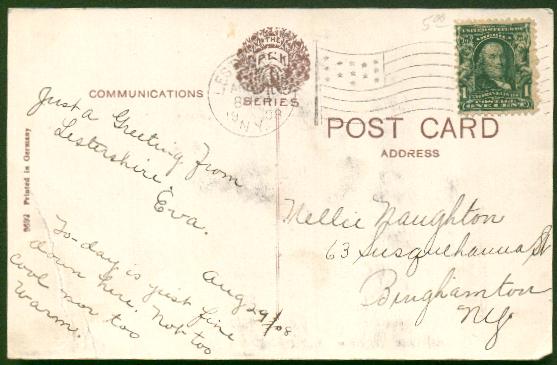 5.00
THE
PCK
SERIES
UNITED STATES
1
POSTAGE
ONE CENT
LES
8
1908
N.Y.
COMMUNICATIONS
POST CARD
ADDRESS
9692 Printed in Germany
Just a Greeting from
Lestershire.
Eva.
To-day is just fine
down here. Not too
cool nor too
warm.
Aug 29/08
Nellie Naughton
63 Susquehanna St
Binghamton
NY